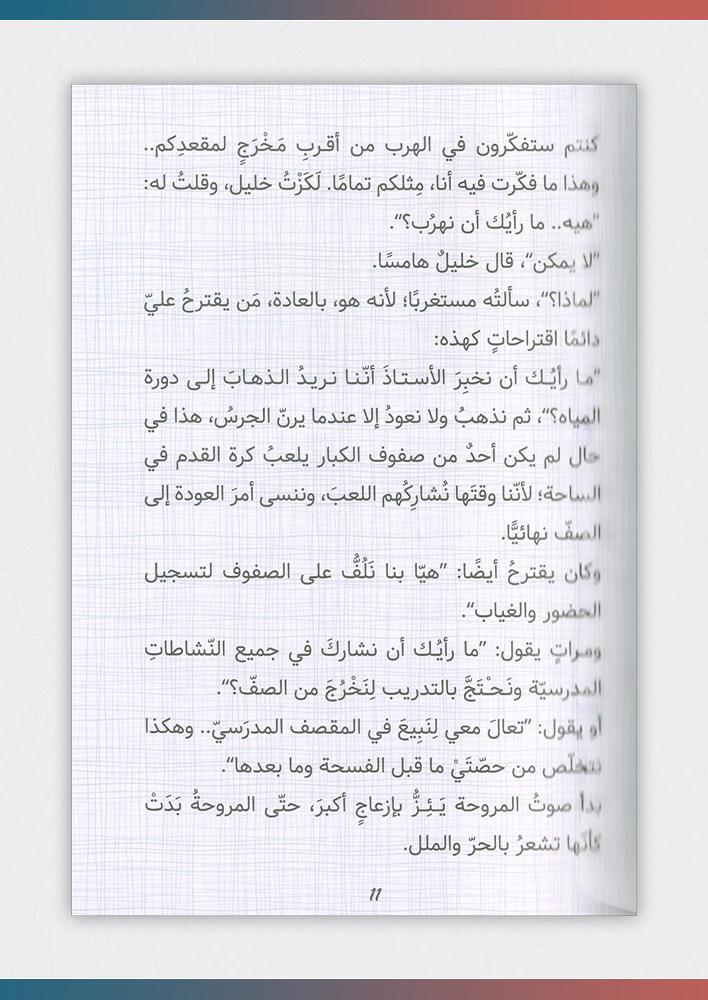 كنتم ستفكّرون في الهرب من أقربِ مَخْرَجٍ لمقعدِكم..
وهذا ما فكّرت فيه أنا، مِثلكم تمامًا. لَكَزْتُ خليل، وقلتُ له:
”هيه.. ما رأيُك أن نهرُب؟“.
”لا يمكن“، قال خليلٌ هامسًا.
”لماذا؟“، سألتُه مستغربًا؛ لأنه هو، بالعادة، مَن يقترحُ عليّ
دائمًا اقتراحاتٍ كهذه:
”ما رأيُك أن نخبِرَ الأستاذَ أنّنا نريدُ الذهابَ إلى دورة
المياه؟“، ثم نذهبُ ولا نعودُ إلا عندما يرنّ الجرسُ، هذا في
حال لم يكن أحدٌ من صفوف الكبار يلعبُ كرة القدم في
الساحة؛ لأنّنا وقتَها نُشارِكُهم اللعبَ، وننسى أمرَ العودة إلى
الصفّ نهائيًّا.
وكان يقترحُ أيضًا: ”هيّا بنا نَلُفُّ على الصفوف لتسجيل
الحضور والغياب“.
ومراتٍ يقول: ”ما رأيُك أن نشاركَ في جميع النّشاطاتِ
المدرسيّة ونَحْتَجَّ بالتدريب لِنَخْرُجَ من الصفّ؟“.
أو يقول: ”تعالَ معي لِنَبِيعَ في المقصف المدرَسيّ.. وهكذا
نتخلّص من حصّتَيْ ما قبل الفسحة وما بعدها“.
بدأ صوتُ المروحة يَئِزُّ بإزعاجٍ أكبرَ، حتّى المروحةُ بَدَتْ
كأنّها تشعرُ بالحرّ والملل.
11